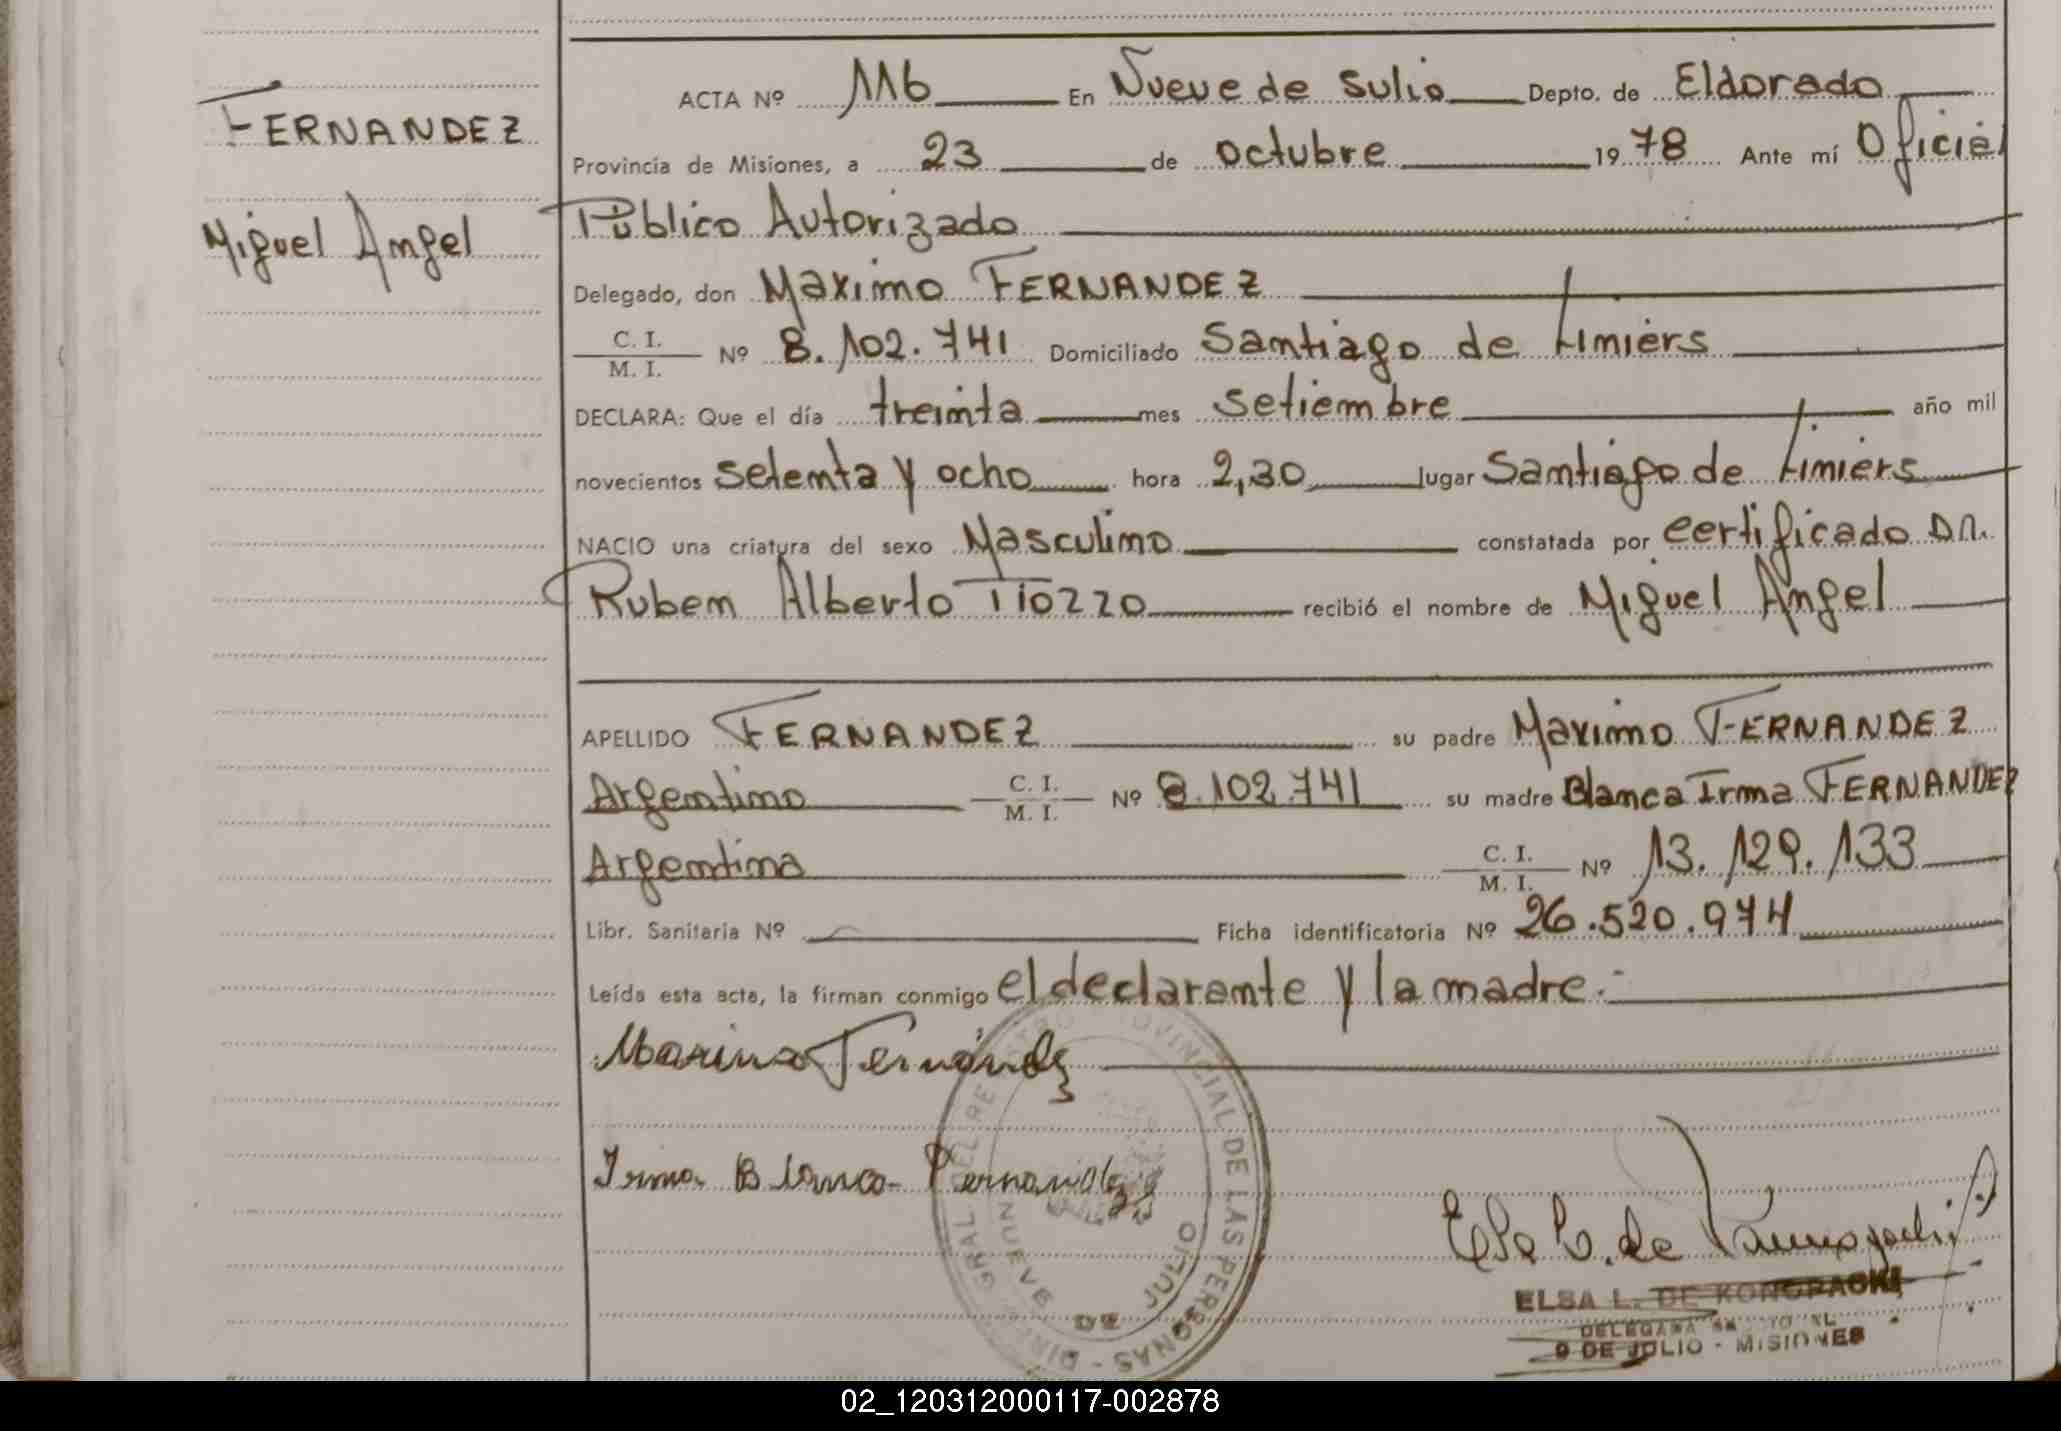 FERNANDEZ
Miguel Angel
ACTA Nº 116 En Nueve de Julio Depto. de Eldorado
Provincia de Misiones, a 23 de octubre 1978 Ante mí Oficial
Público Autorizado
Delegado, don Maximo FERNANDEZ
C. I. / M. I. Nº 8.102.741 Domiciliado Santiago de Limiers
DECLARA: Que el día treinta mes setiembre año mil
novecientos setenta y ocho hora 2,30 lugar Santiago de Limiers
NACIO una criatura del sexo Masculino constatada por certificado Dr.
Ruben Alberto TIOZZO recibió el nombre de Miguel Angel
APELLIDO FERNANDEZ su padre Maximo FERNANDEZ
Argentino C. I. / M. I. Nº 8.102.741 su madre Blanca Irma FERNANDEZ
Argentina C. I. / M. I. Nº 13.129.133
Libr. Sanitaria Nº Ficha identificatoria Nº 26.520.974
Leída esta acta, la firman conmigo el declarante y la madre.-
Maximo Fernández
Irma Blanca Fernandez
Elsa L. de
ELSA L. DE KONOPACKI
DELEGADA
9 DE JULIO - MISIONES
PROVINCIAL DE LAS PERSONAS - DIR. GRAL. DEL REGISTRO
NUEVE DE JULIO
02_120312000117-002878